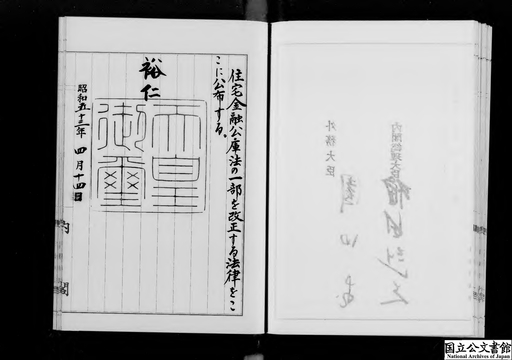 住宅金融公庫法の一部を改正する法律をこ
こに公布する。
裕仁
天皇
御璽
昭和五十三年 四月十四日
内閣
内閣総理大臣
外務大臣
国立公文書館
National Archives of Japan